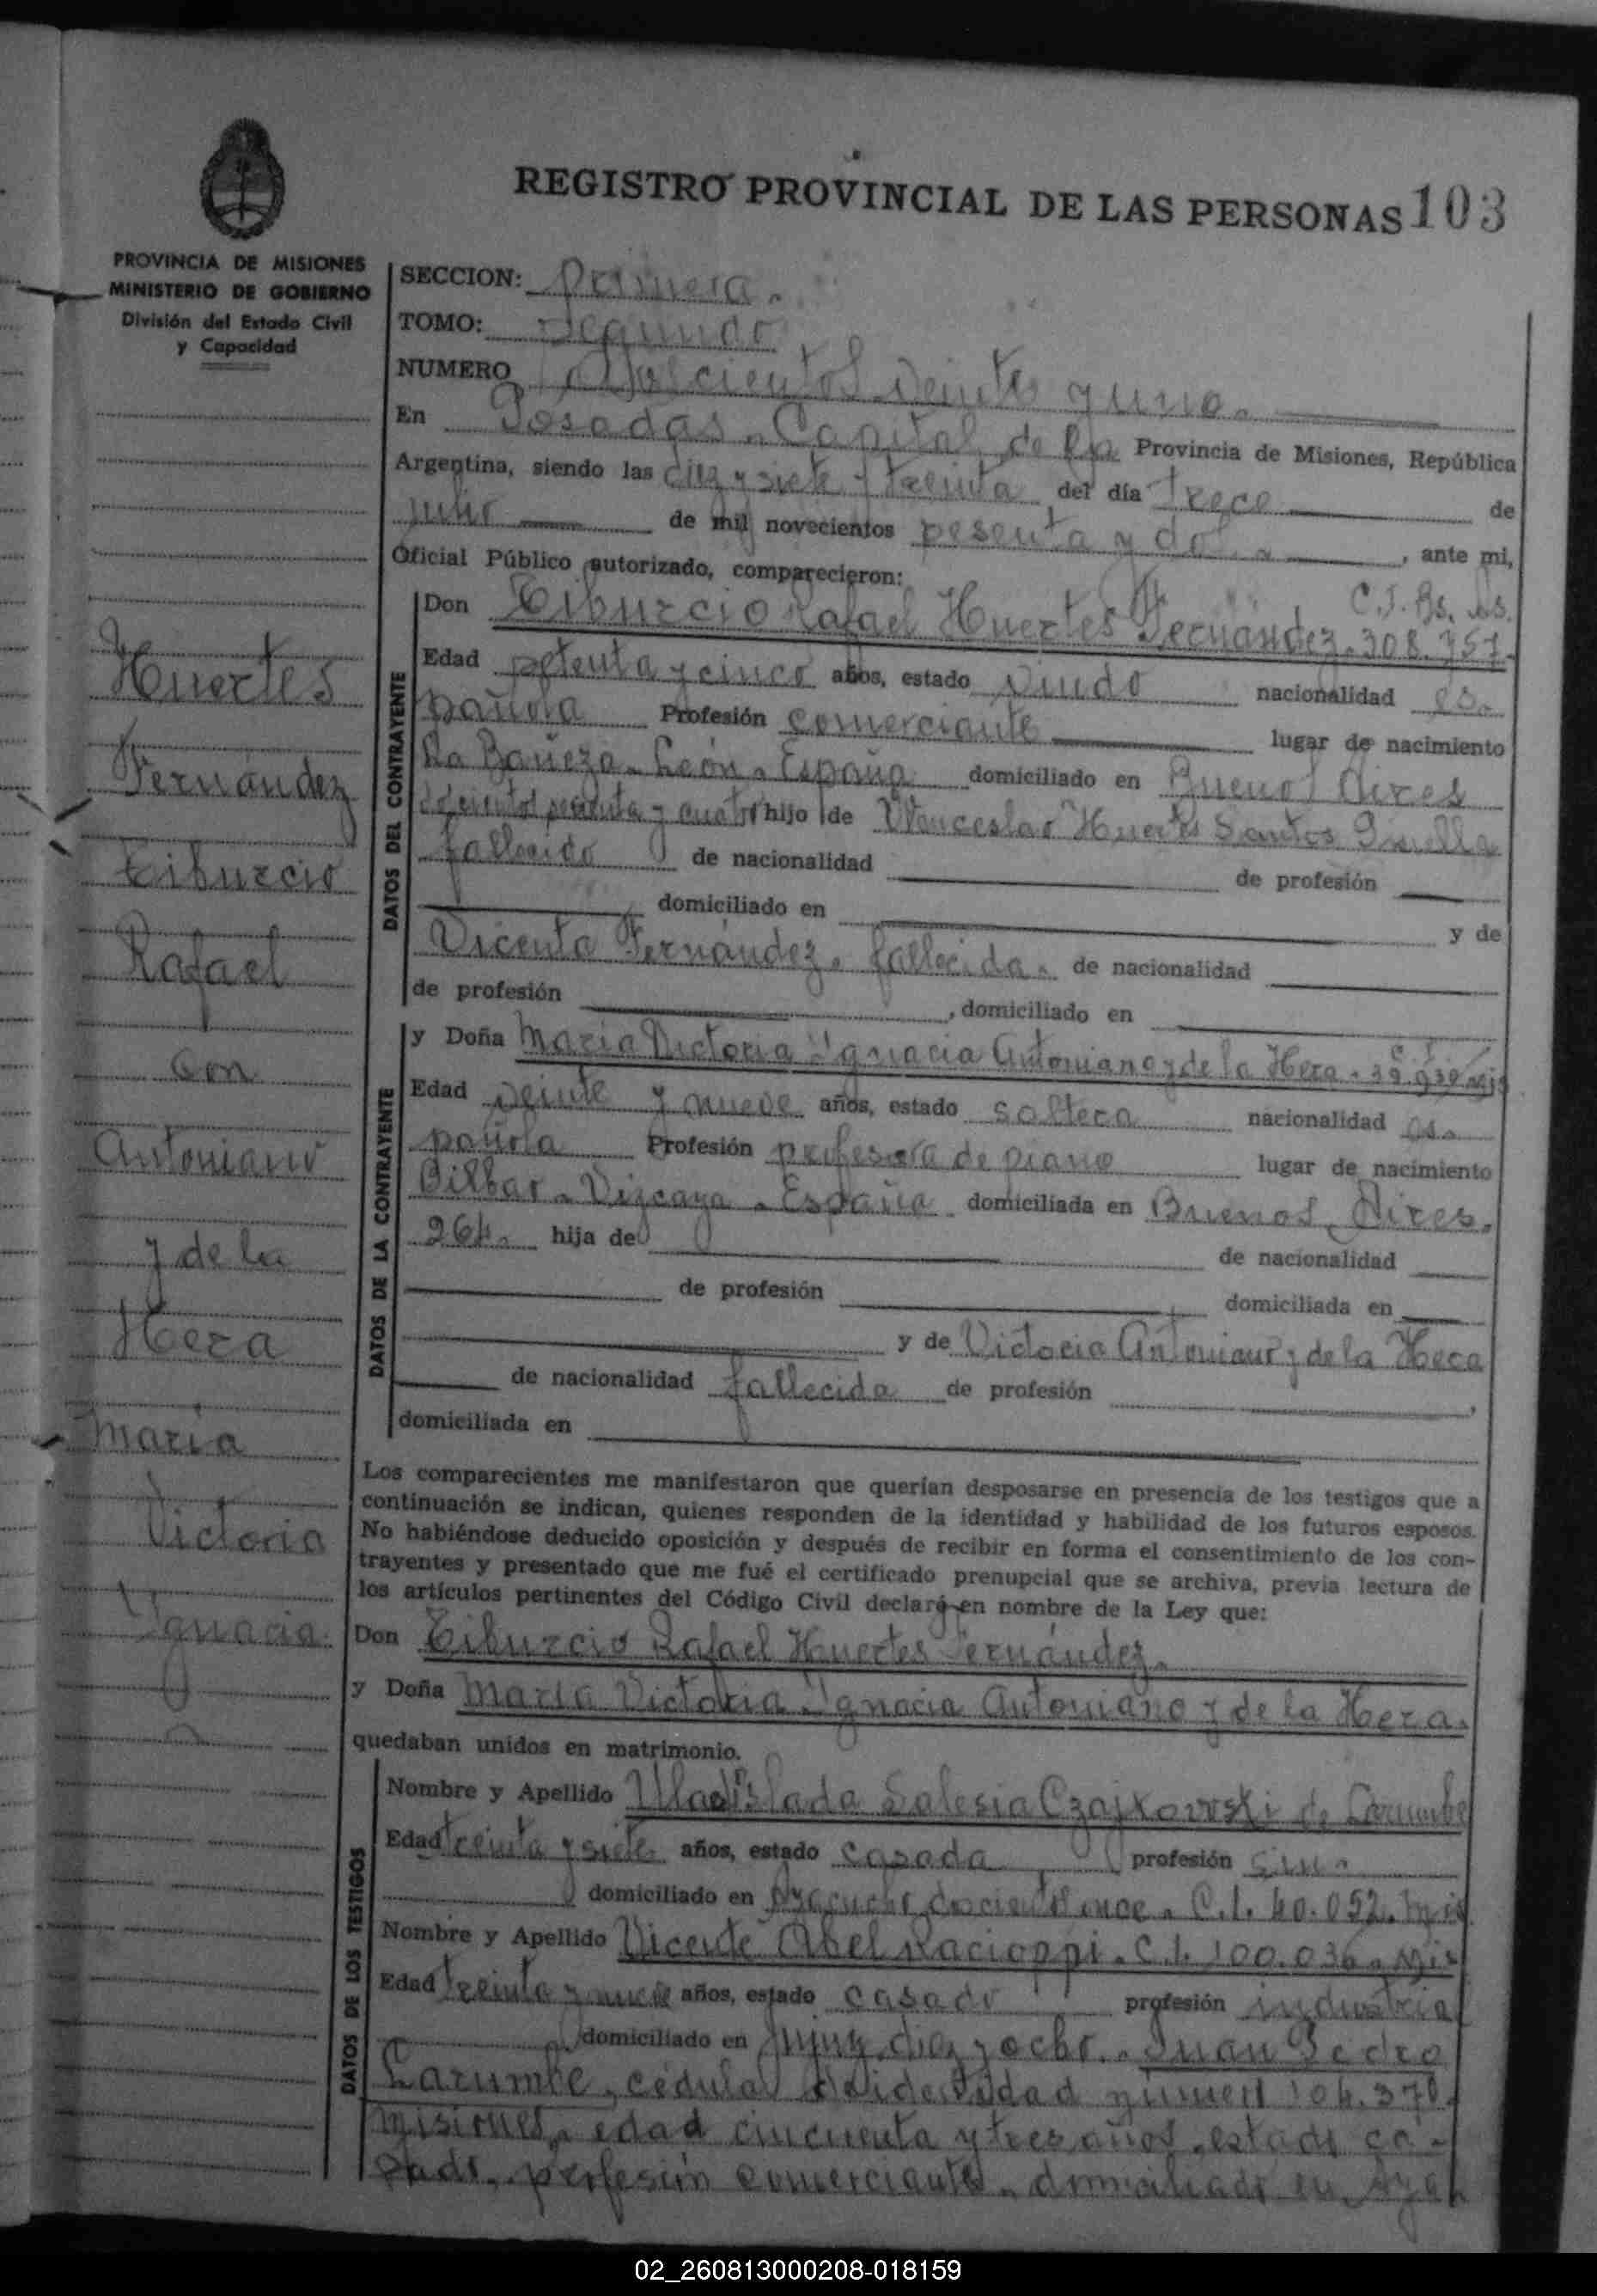 REGISTRO PROVINCIAL DE LAS PERSONAS 103
PROVINCIA DE MISIONES
MINISTERIO DE GOBIERNO
División del Estado Civil
y Capacidad
Huertes
Fernández
Tiburcio
Rafael
con
Antoniano
y de la
Hera
María
Victoria
Ygnacia
SECCION: Primera.
TOMO: Segundo
NUMERO Doscientos veinte y uno.
En Posadas. Capital de la Provincia de Misiones, República
Argentina, siendo las diez y siete y treinta del día trece de
julio de mil novecientos sesenta y dos, ante mi,
Oficial Público autorizado, comparecieron:
C.I. Bs. As.
Don Tiburcio Rafael Huertes Fernández. 308.757.
Edad setenta y cinco años, estado viudo nacionalidad es-
pañola Profesión comerciante lugar de nacimiento
La Bañeza. León. España domiciliado en Buenos Aires
docientos sesenta y cuatro hijo de Wenceslao Huertes Santos
fallecido de nacionalidad de profesión
domiciliado en y de
Vicenta Fernández. fallecida. de nacionalidad
de profesión , domiciliado en
y Doña María Victoria Ygnacia Antoniano y de la Hera. 39.930 Mis
Edad veinte y nueve años, estado soltera nacionalidad es-
pañola Profesión profesora de piano lugar de nacimiento
Bilbao. Vizcaya. España domiciliada en Buenos Aires.
264. hija de de nacionalidad
de profesión domiciliada en
y de Victoria Antoniano y de la Hera
de nacionalidad fallecida de profesión ,
domiciliada en
Los comparecientes me manifestaron que querían desposarse en presencia de los testigos que a
continuación se indican, quienes responden de la identidad y habilidad de los futuros esposos.
No habiéndose deducido oposición y después de recibir en forma el consentimiento de los con-
trayentes y presentado que me fué el certificado prenupcial que se archiva, previa lectura de
los artículos pertinentes del Código Civil declaré en nombre de la Ley que:
Don Tiburcio Rafael Huertes Fernández.
y Doña María Victoria Ygnacia Antoniano y de la Hera.
quedaban unidos en matrimonio.
Nombre y Apellido Uladislada Salesia Czajkowski de Larumbe
Edad treinta y siete años, estado casada profesión sin.
domiciliado en Ayacucho docientos once. C.I. 40.052. Mis
Nombre y Apellido Vicente Abel Racioppi. C.I. 100.036. Mis
Edad treinta y nueve años, estado casado profesión industrial
domiciliado en Jujuy diez y ocho. Juan Pedro
Larumbe, cédula de identidad número 104.370.
Misiones. edad cincuenta y tres años. estado ca-
sado. profesión comerciante. domiciliado en Aya
DATOS DEL CONTRAYENTE
DATOS DE LA CONTRAYENTE
DATOS DE LOS TESTIGOS
02_260813000208-018159